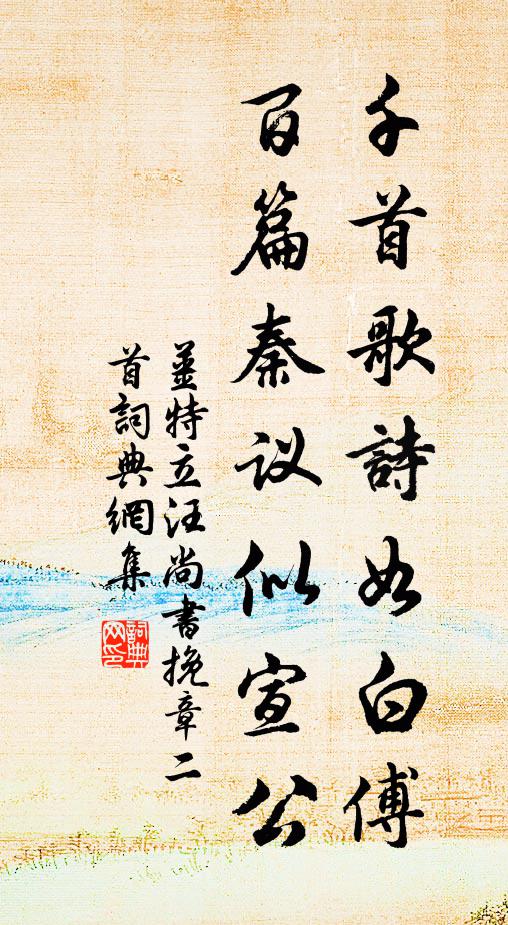 千首歌詩如白傅
百篇秦议似宣公
薑特立汪尚書挽章二
首詞典網集
詞典網印